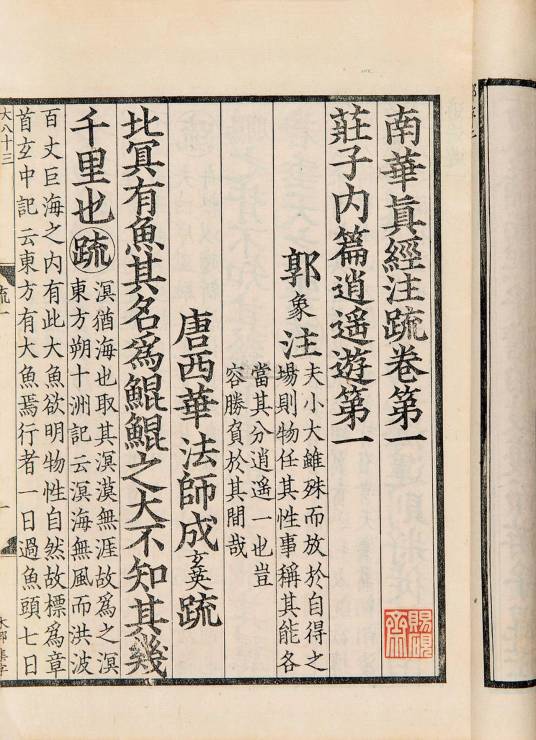 南華眞經注䟽卷第一
莊子内篇逍遥遊第一
郭象注
夫小大雖殊而放於自得之
場則物任其性事稱其能各
當其分逍遥一也豈
容勝負於其間哉
唐西華法師成玄英䟽
北冥有魚其名爲鯤鯤之大不知其幾
千里也䟽
溟猶海也取其溟漠無涯故爲之溟
東方朔十洲記云溟海無風而洪波
百丈巨海之内有此大魚欲明物性自然故標爲章
首玄中記云東方有大魚焉行者一日過魚頭七日
大八十三